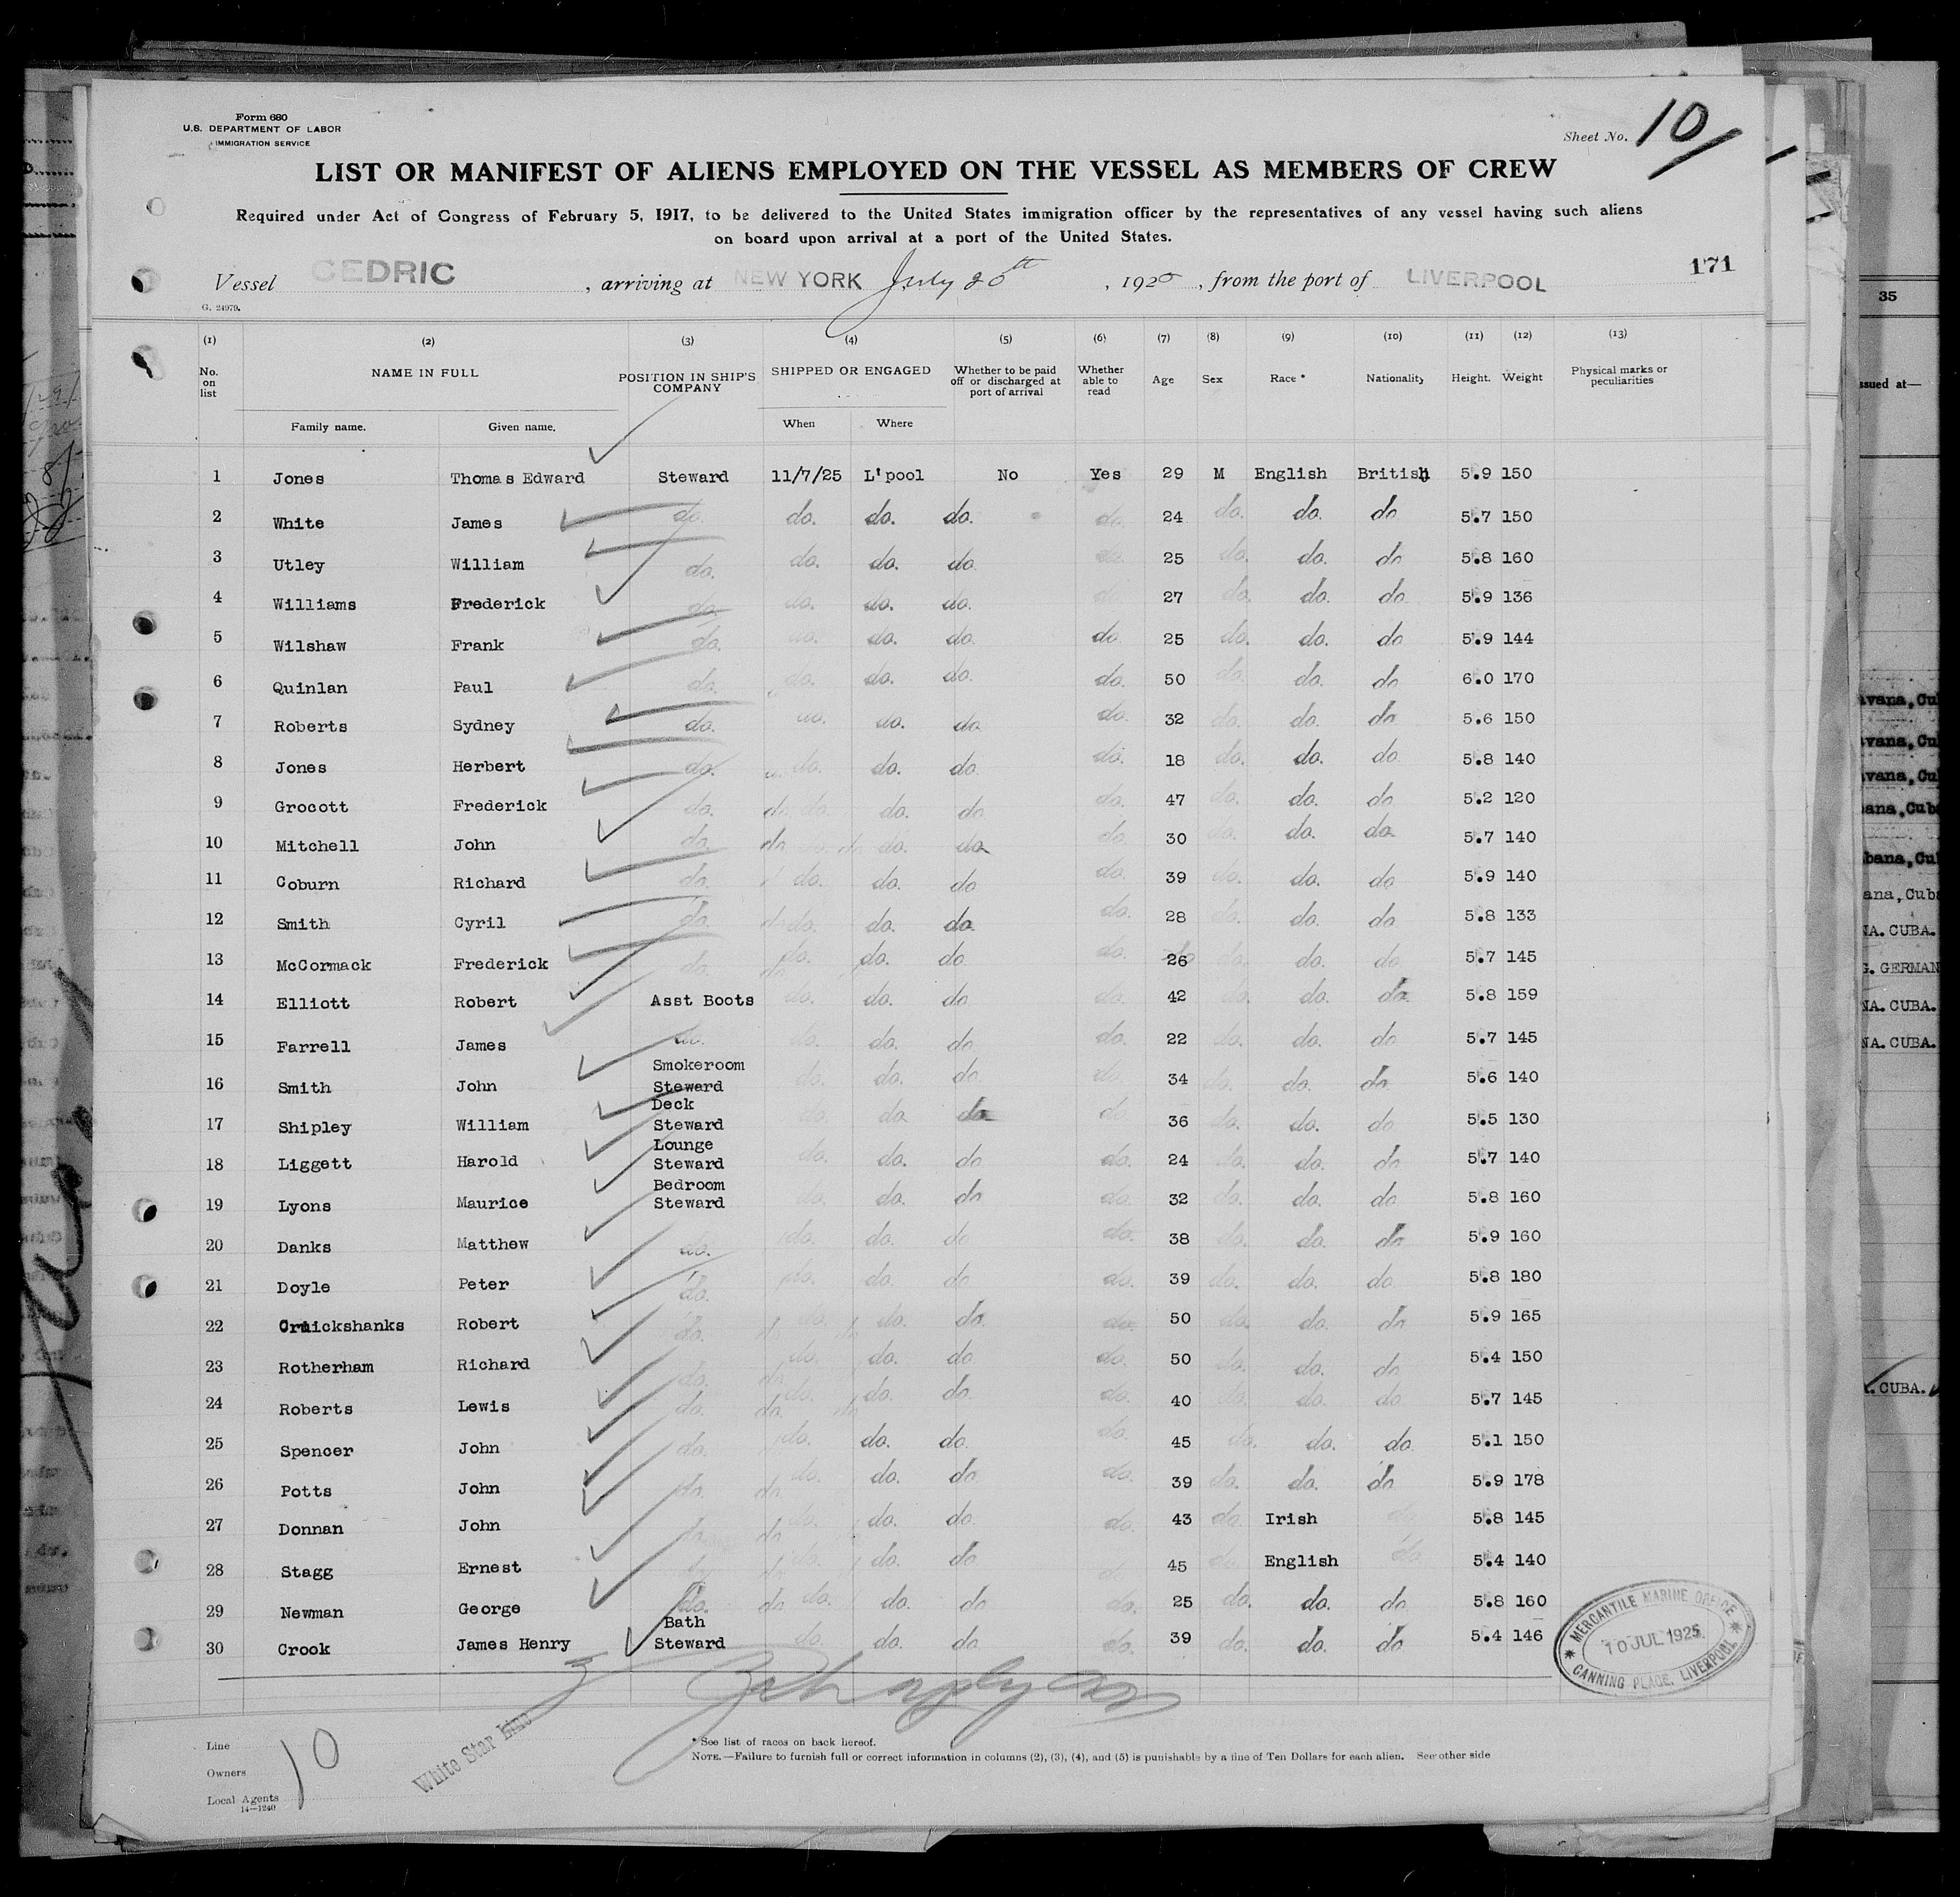 Form 680
U.S. DEPARTMENT OF LABOR
IMMIGRATION SERVICE
Sheet No. 10
LIST OR MANIFEST OF ALIENS EMPLOYED ON THE VESSEL AS MEMBERS OF CREW
Required under Act of Congress of February 5, 1917, to be delivered to the United States immigration officer by the representatives of any vessel having such aliens
on board upon arrival at a port of the United States.
171
Vessel CEDRIC, arriving at NEW YORK July 20th, 1925, from the port of LIVERPOOL
G. 24979.
(1) (2) (3) (4) (5) (6) (7) (8) (9) (10) (11) (12) (13)
No. on list NAME IN FULL POSITION IN SHIP'S COMPANY SHIPPED OR ENGAGED Whether to be paid off or discharged at port of arrival Whether able to read Age Sex Race * Nationality Height. Weight Physical marks or peculiarities
Family name. Given name. When Where
1 Jones Thomas Edward Steward 11/7/25 L'pool No Yes 29 M English British 5.9 150
2 White James do. do. do. do. do. 24 do. do. do 5.7 150
3 Utley William do. do. do. do. do. 25 do. do. do 5.8 160
4 Williams Frederick do. do. do. do. do. 27 do. do. do 5.9 136
5 Wilshaw Frank do. do. do. do. do. 25 do. do. do 5.9 144
6 Quinlan Paul do. do. do. do. do. 50 do. do. do 6.0 170
7 Roberts Sydney do. do. do. do do. 32 do. do. do 5.6 150
8 Jones Herbert do. do. do. do do. 18 do. do. do 5.8 140
9 Grocott Frederick do. do. do. do do. 47 do. do. do 5.2 120
10 Mitchell John do. do. do. do do. 30 do. do. do 5.7 140
11 Coburn Richard do. do. do. do do. 39 do. do. do 5.9 140
12 Smith Cyril do. do. do. do. do. 28 do. do. do 5.8 133
13 McCormack Frederick do. do. do. do do. 26 do. do. do 5.7 145
14 Elliott Robert Asst Boots do. do. do do. 42 do. do. do 5.8 159
15 Farrell James do. do. do. do do. 22 do. do. do 5.7 145
16 Smith John Smokeroom Steward do. do. do do 34 do. do. do 5.6 140
17 Shipley William Deck Steward do. do do do 36 do. do. do 5.5 130
18 Liggett Harold Lounge Steward do. do. do do. 24 do. do. do 5.7 140
19 Lyons Maurice Bedroom Steward do. do. do do. 32 do. do. do 5.8 160
20 Danks Matthew do. do. do. do do. 38 do. do. do 5.9 160
21 Doyle Peter do. do. do. do do. 39 do. do. do 5.8 180
22 Cruickshanks Robert do. do. do. do. do. 50 do. do. do 5.9 165
23 Rotherham Richard do. do. do. do do. 50 do. do. do 5.4 150
24 Roberts Lewis do. do. do. do do. 40 do. do. do 5.7 145
25 Spencer John do. do. do. do. do. 45 do. do. do. 5.1 150
26 Potts John do. do. do. do do. 39 do. do. do 5.9 178
27 Donnan John do. do. do. do. do. 43 do. Irish do 5.8 145
28 Stagg Ernest do. do. do. do do. 45 do. English do. 5.4 140
29 Newman George do. do. do. do do. 25 do. do. do 5.8 160
30 Crook James Henry Bath Steward do. do. do. do. 39 do. do. do 5.4 146
MERCANTILE MARINE OFFICE
10 JUL 1925
CANNING PLACE, LIVERPOOL
Line
Owners
Local Agents
14—1240
10
White Star Line
* See list of races on back hereof.
NOTE.—Failure to furnish full or correct information in columns (2), (3), (4), and (5) is punishable by a fine of Ten Dollars for each alien. See other side
35
ssued at—
avana, Cu
avana, Cu
avana, Cu
ana, Cuba
bana, Cu
ana, Cuba
NA. CUBA.
G. GERMAN
NA. CUBA.
NA. CUBA.
. CUBA.